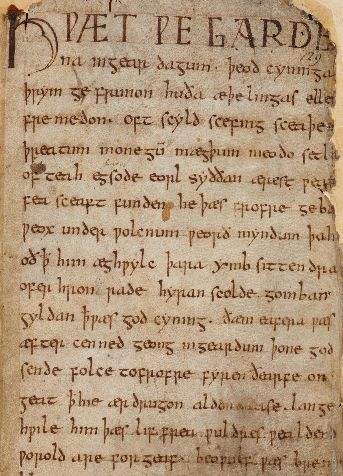 HǷÆT ǷE GARDE
na ingear dagum. þeod cyninga
þrym ge frunon huða æþelingas elle
fre medon. oft scyld scefing sceaþe
þreatum monegū mægþum meodo setl
of teah egsode eorl syððan ærest ƿear
fea sceaft funden he þæs frofre geba
ƿeox under ƿolcnum ƿeorð myndum þah
oð ꝥ him æghƿylc þara ymb sittendra
ofer hron rade hyran scolde gomban
gyldan ꝥ ƿæs god cyning. ðæm eafera ƿæs
æfter cenned geong ingeardum þone god
sende folce tofrofre fyren ðearfe on
geat ꝥ hie ær drugon aldor ase. lange
hƿile him þæs lif frea ƿuldres ƿealdend
ƿorold are forgeaf. beoƿulf ƿæs breme